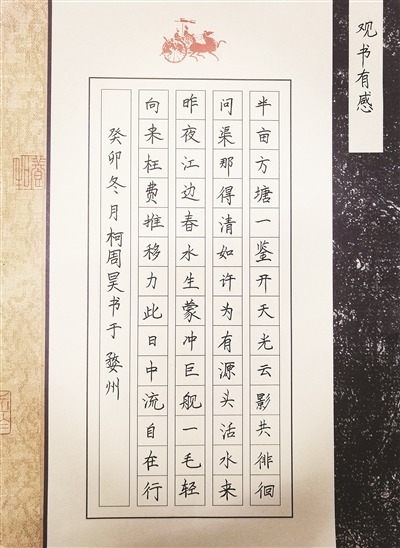 观书有感
半亩方塘一鉴开天光云影共徘徊
问渠那得清如许为有源头活水来
昨夜江边春水生蒙冲巨舰一毛轻
向来枉费推移力此日中流自在行
癸卯冬月柯周昊书于婺州